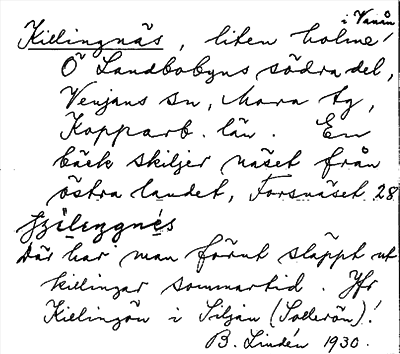 i Vanån
Killingnäs, liten holme
Ö Landbobyns södra del,
Venjans sn, Mora tg,
Kopparb. län. En
bäck skiljer näset från
östra landet, Forsnäset 28
Där har man förut släppt ut
killingar sommartid. Jfr
Killingön i Siljan (Sollerön)!
B. Lindén 1930.